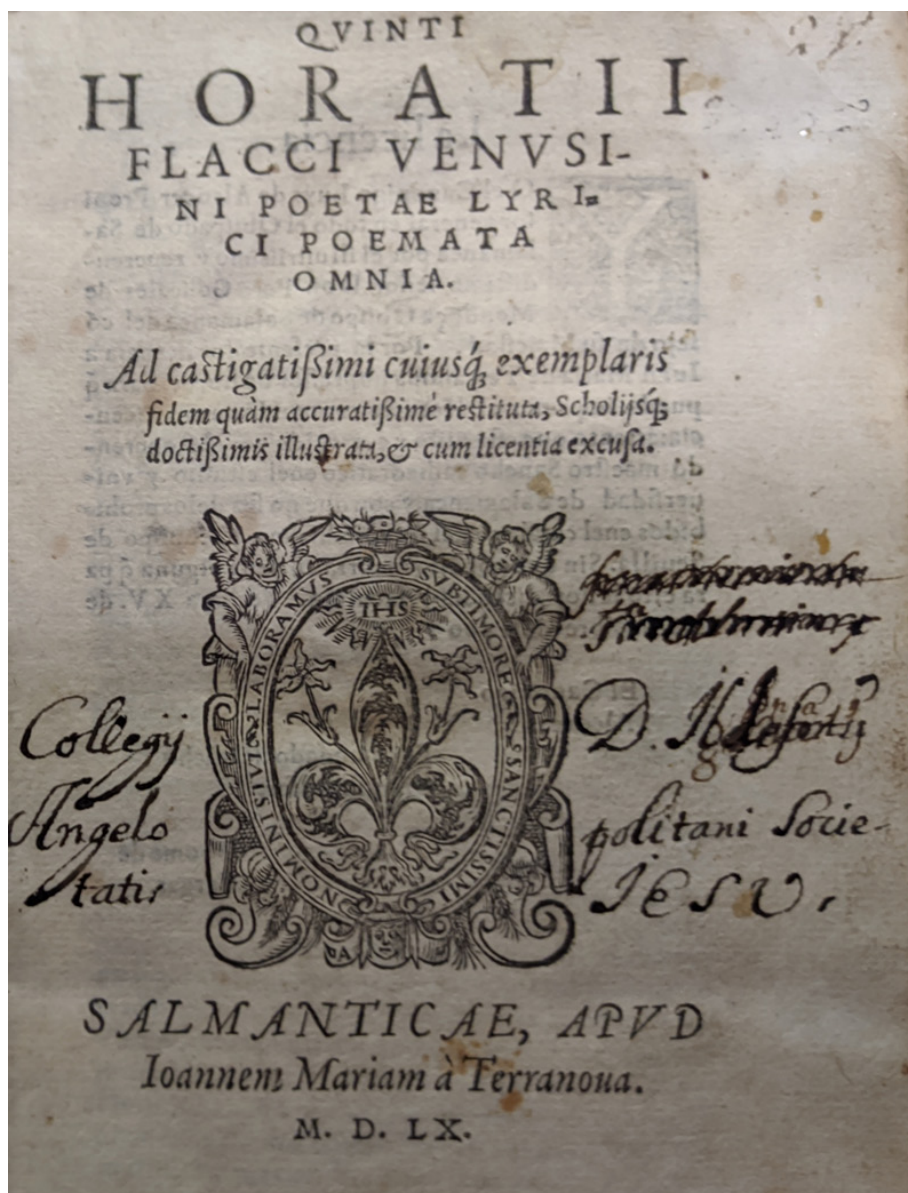 QVINTI
HORATII
FLACCI VENVSI-
NI POETAE LYRI=
CI POEMATA
OMNIA.
Ad castigatißimi cuiusq́; exemplaris
fidem quàm accuratißimè restituta, Scholijsq́;
doctißimis illustrata, & cum licentia excusa.
SVB TIMORE SANCTISSIMI NOMINIS IVI LABORAMVS
IHS
Collegij D.
Angelo politani Socie-
tatis IESV.
A
SALMANTICAE, APVD
Ioannem Mariam à Terranoua.
M. D. LX.